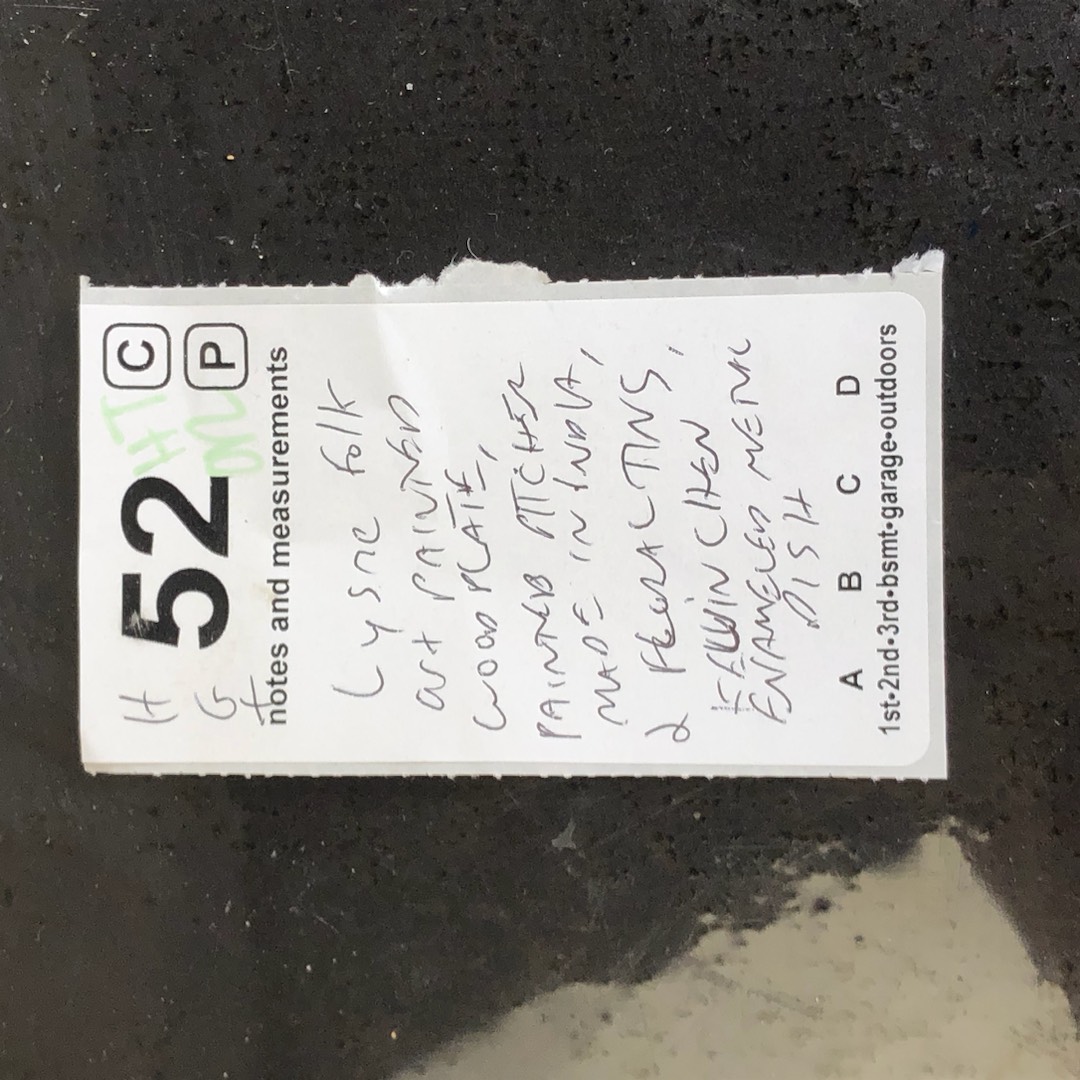 H 52 HT C
G P
notes and measurements
Lysne folk
art PAINTED
WOOD PLATE,
PAINTED PITCHER
MADE IN INDIA,
2
ENAMELED METAL
DISH
A B C D
1st•2nd•3rd•bsmt•garage•outdoors